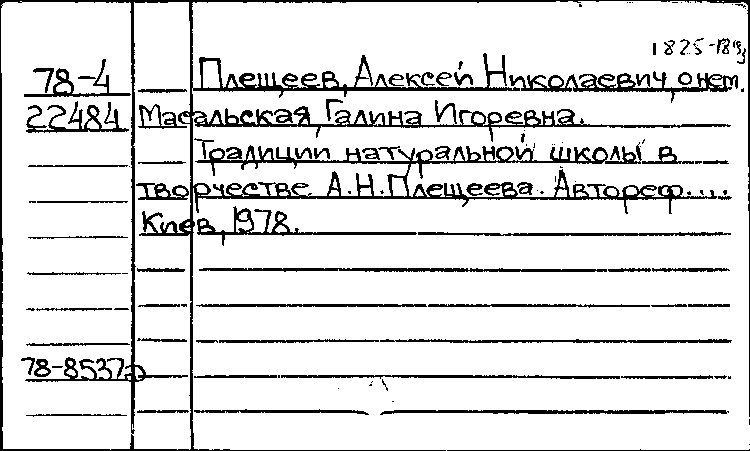 1825-1893
78-4 Плещеев, Алексей Николаевич, о нем.
22484 Масальская, Галина Игоревна.
Традиции натуральной школы в
творчестве А.Н.Плещеева. Автореф....
Киев, 1978.
78-8537а